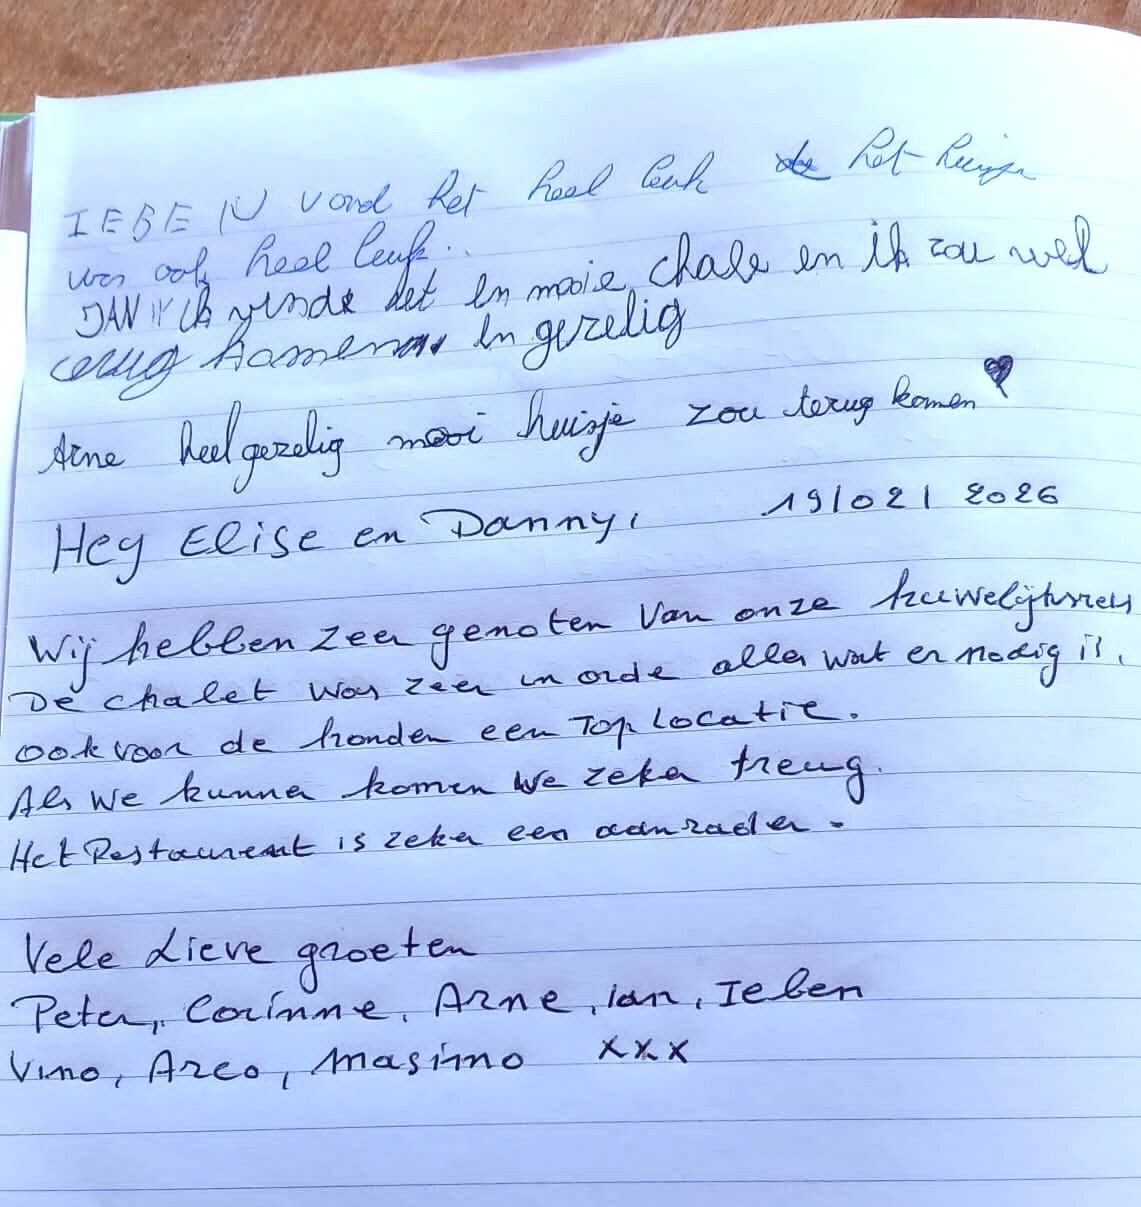 IEBEN vond het heel leuk het huisje
was ook heel leuk..
JAN ik vinde het en mooie chale en ik zou wel
terug komen en gezelig
Arne heel gezelig mooi huisje zou terug komen
Hey Elise en Danny, 19/02/2026
Wij hebben zeer genoten van onze huwelijksreis
De chalet was zeer in orde alles wat er nodig is.
ook voor de honden een Top Locatie.
Als we kunnen komen we zeker treug.
Het Restaurent is zeker een aanrader.
Vele Lieve groeten
Peter, Corinne, Arne, ian, Ieben
Vino, Arco, Masimo xxx